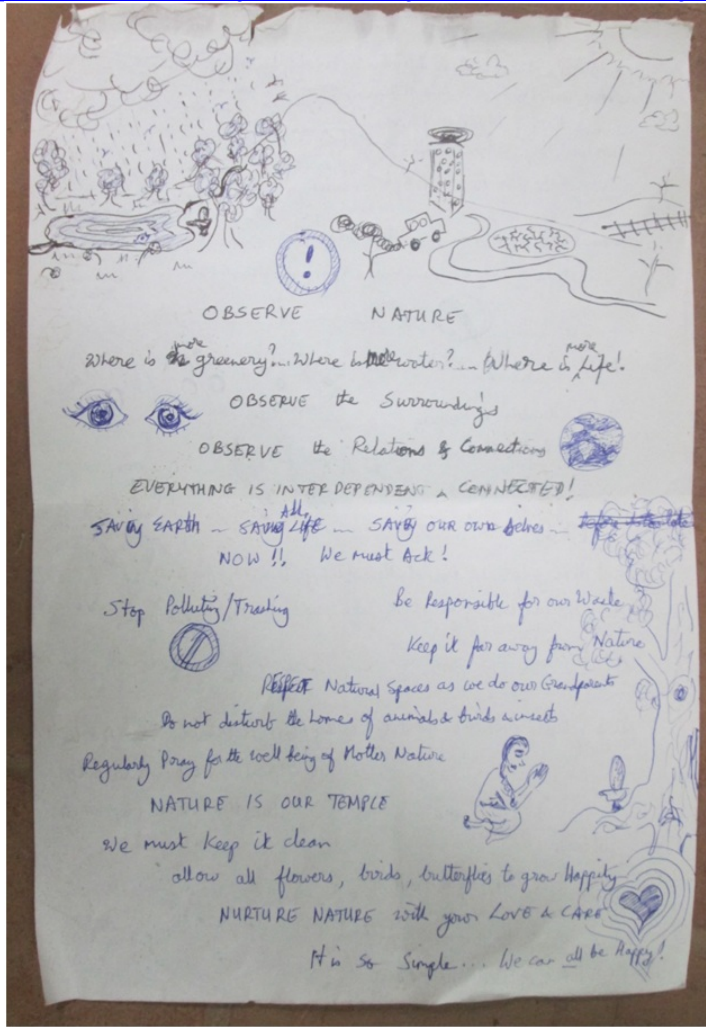 !
OBSERVE NATURE
Where is more greenery?... Where is more water?... Where is more Life!
OBSERVE the Surroundings
OBSERVE the Relations & Connections
EVERYTHING IS INTERDEPENDENT & CONNECTED!
SAVING EARTH ... SAVING ALL LIFE ... SAVING OUR OWN Selves ... before it too late
NOW !! We must Act!
Stop Polluting/Trashing Be Responsible for our Waste
Keep it far away from Nature
RESPECT Natural Spaces as we do our Grandparents
Do not disturb the homes of animals & birds & insects
Regularly Pray for the well being of Mother Nature
NATURE IS OUR TEMPLE
We must Keep it clean
allow all flowers, birds, butterflies to grow Happily
NURTURE NATURE with your LOVE & CARE
It is so Simple... We can all be Happy!